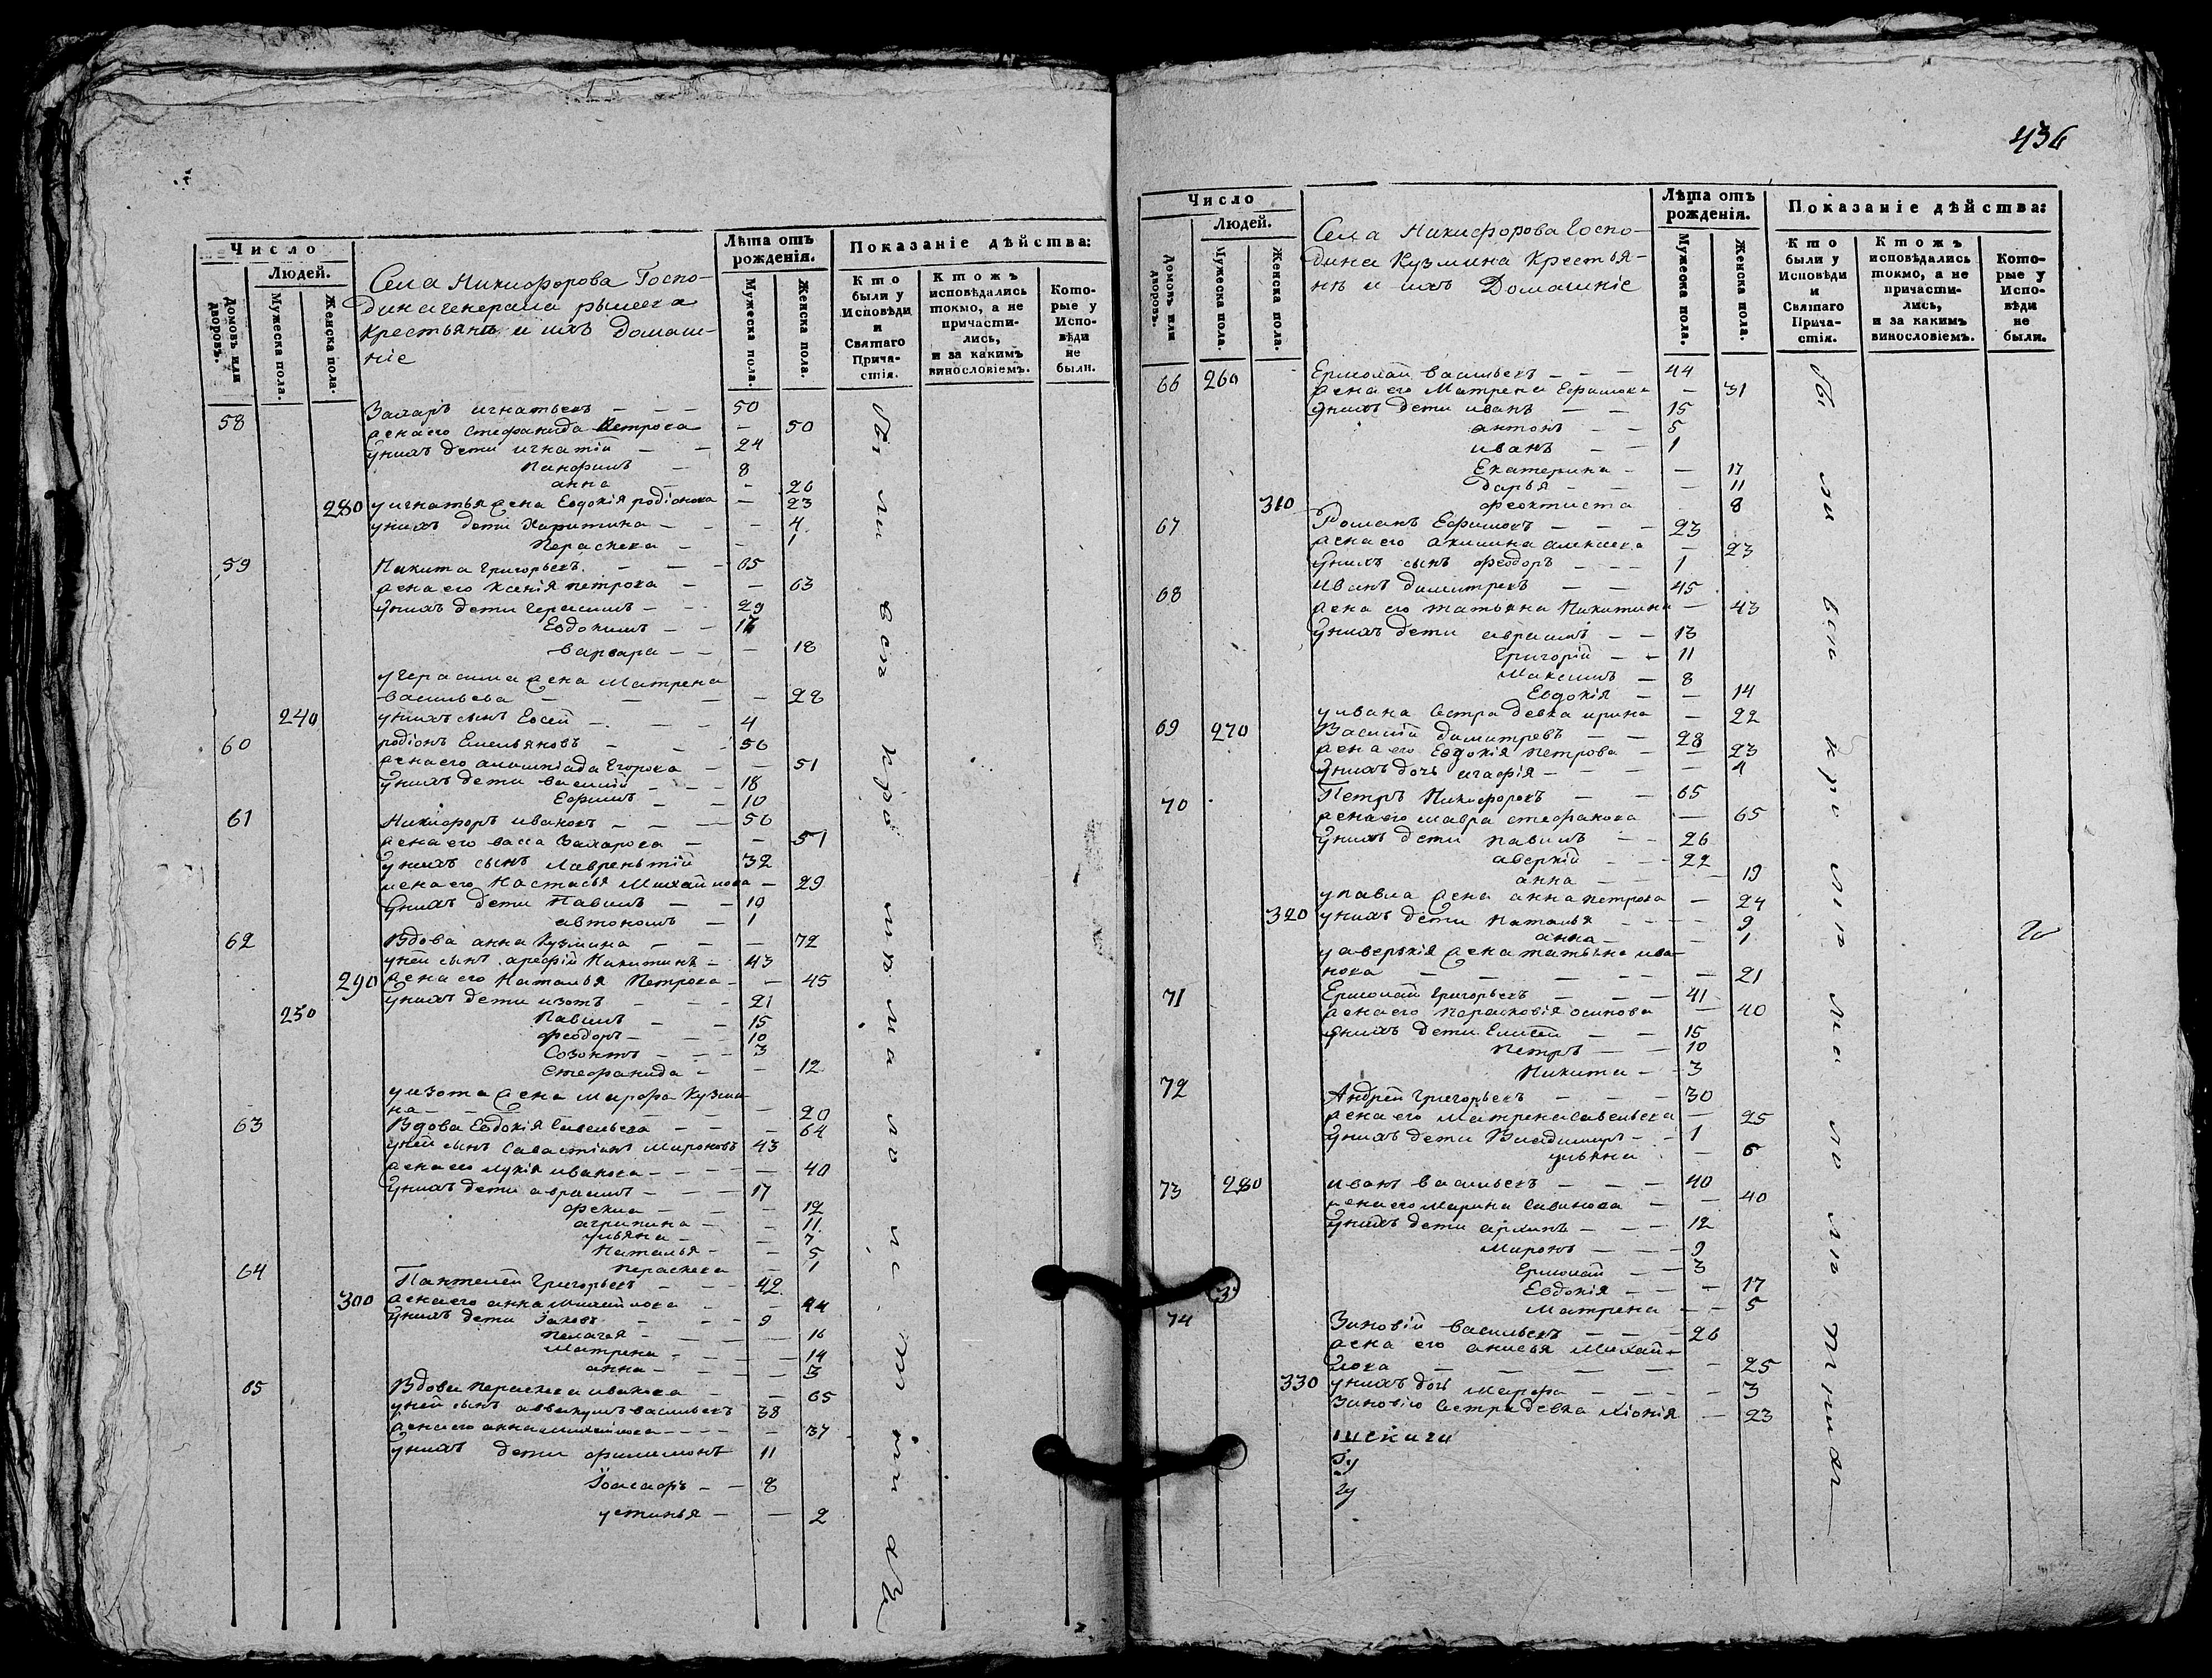 Число
Людей.
Домовъ или дворовъ.
Мужеска пола.
Женска пола.
Села Никифорова Госпо-
дина генерала
крестьянъ и ихъ Домаш-
ніе
Лѣта отъ рожденія.
Мужеска пола.
Женска пола.
Показаніе дѣйства:
Кто были у Исповѣди и Святаго Прича-стія.
Ктожъ исповѣдались токмо, а не причасти-лись, и за какимъ винословіемъ.
Кото-рые у Испо-вѣди не были.
58 Захаръ игнатьевъ — — — 50
жена его Стефанида Петрова — 50
У нихъ дети игнатій — — 24
Панфилъ — 8
анна — - 20
280 у игнатья жена Евдокія родіонова — 23
у нихъ дети Харитина — — - 4
Параскева — - 1
59 Никита григорьевъ — — — 65
жена его Ксенія петрова — — 63
У нихъ дети герасимъ — — 29
Евдокимъ — — 17
варвара — — — 18
у герасима жена Матрена
васильева — — — — 28
240 у нихъ сынъ Евсей — — 4
60 родіонъ Емельяновъ — — — 56
жена его алимпіада Егорова — — 51
У нихъ дети василій — — — 18
Ефимъ — — 10
61 Никифоръ ивановъ — — — 56
жена его васа Захарова — — 51
у нихъ сынъ Лаврентій 32
жена его Настасья Михайлова — 29
У нихъ дети Павилъ — — 10
автономъ — 1
62 Вдова анна Кузмина — — — 72
у ней сынъ арефій Никитинъ — 43
290 жена его Наталья Петрова — — 45
У нихъ дети изотъ — — — 21
250 Павилъ — — 15
Феодоръ — — 10
Созонтъ — — 3
Стефанида — — 12
у изота жена марфа Кузми
на — — — — 20
63 Вдова Евдокія Савельева — — — 64
у ней сынъ Савастіянъ Мироновъ 43
жена его лукія иванова — — — — 40
У нихъ дети аврамъ — — — 17
фекла — — — 12
агрипина — — 11
ульяна — — 7
Наталья — — 5
Параскева — 1
64 Пантелей григорьевъ — — — 42
300 жена его анна михайлова — — 44
У нихъ дети Іаковъ — — — 9
пелагея — — — 16
Матрена — — — 14
анна — — — 3
65 Вдова параскева иванова — — 65
у ней сынъ аввакумъ васильевъ 38
жена его анна михайлова — — — — 37
У нихъ дети филимонъ 11
Іоасафъ — — 8
устинья — — 2
436
Число
Людей.
Домовъ или дворовъ.
Мужеска пола.
Женска пола.
Села Никифорова Госпо-
дина Кузмина Крестья-
нъ и ихъ Домашніе
Лѣта отъ рожденія.
Мужеска пола.
Женска пола.
Показаніе дѣйства:
Кто были у Исповѣди и Святаго Прича-стія.
Ктожъ исповѣдались токмо, а не причасти-лись, и за какимъ винословіемъ.
Кото-рые у Испо-вѣди не были.
66 260 Ермолай васильевъ — — — 44
жена его Матрена Ефимова — 31
У нихъ дети иванъ — — 15
антонъ — — 5
иванъ — — 1
Екатерина — — 17
Дарья — — — 11
310 феоктиста 8
67 Романъ Ефимовъ — — — 23
жена его акилина алексеева — 23
У нихъ сынъ феодоръ — — — 1
68 Иванъ димитревъ — — 45
жена его татьяна Никитина — 43
У нихъ дети аврамъ — — 13
григорій — — 11
Максимъ — 8
Евдокія — — 14
у ивана сестра девка ирина — 22
69 270 Василій димитревъ — — 28
жена его Евдокія петрова — — 23
У нихъ дочь агафія — — — — 4
70 Петръ Никифоровъ — — 65
жена его мавра стефанова — 65
У нихъ дети павилъ — — 26
аверкій — — 22
анна — — — 19
у павла жена анна петрова — 24
320 у нихъ дети Наталья — — — 9
анна — — 1
у аверкія жена татьяна ива
нова — — — — — 21
71 Ермолай григорьевъ — — — 41
жена его парасковія осипова — 40
У нихъ дети Елисей — — 15
Петръ — — 10
Никита — — 3
72 Андрей григорьевъ — — — 30
жена его матрена савельева — 25
У нихъ дети Владимиръ — — 1
ульяна — 6
73 280 иванъ васильевъ — — — 40
жена его марина савинова — — 40
У нихъ дети архипъ — — — 12
Миронъ — — — 9
Ермолай — — 3
Евдокія — — — 17
Матрена — — 5
74 Зиновій васильевъ — — — 26
жена его анисья Михай-
лова — — — — — 25
330 у нихъ дочь марфа — — — — 3
Зиновію сестра девка хіонія — 23